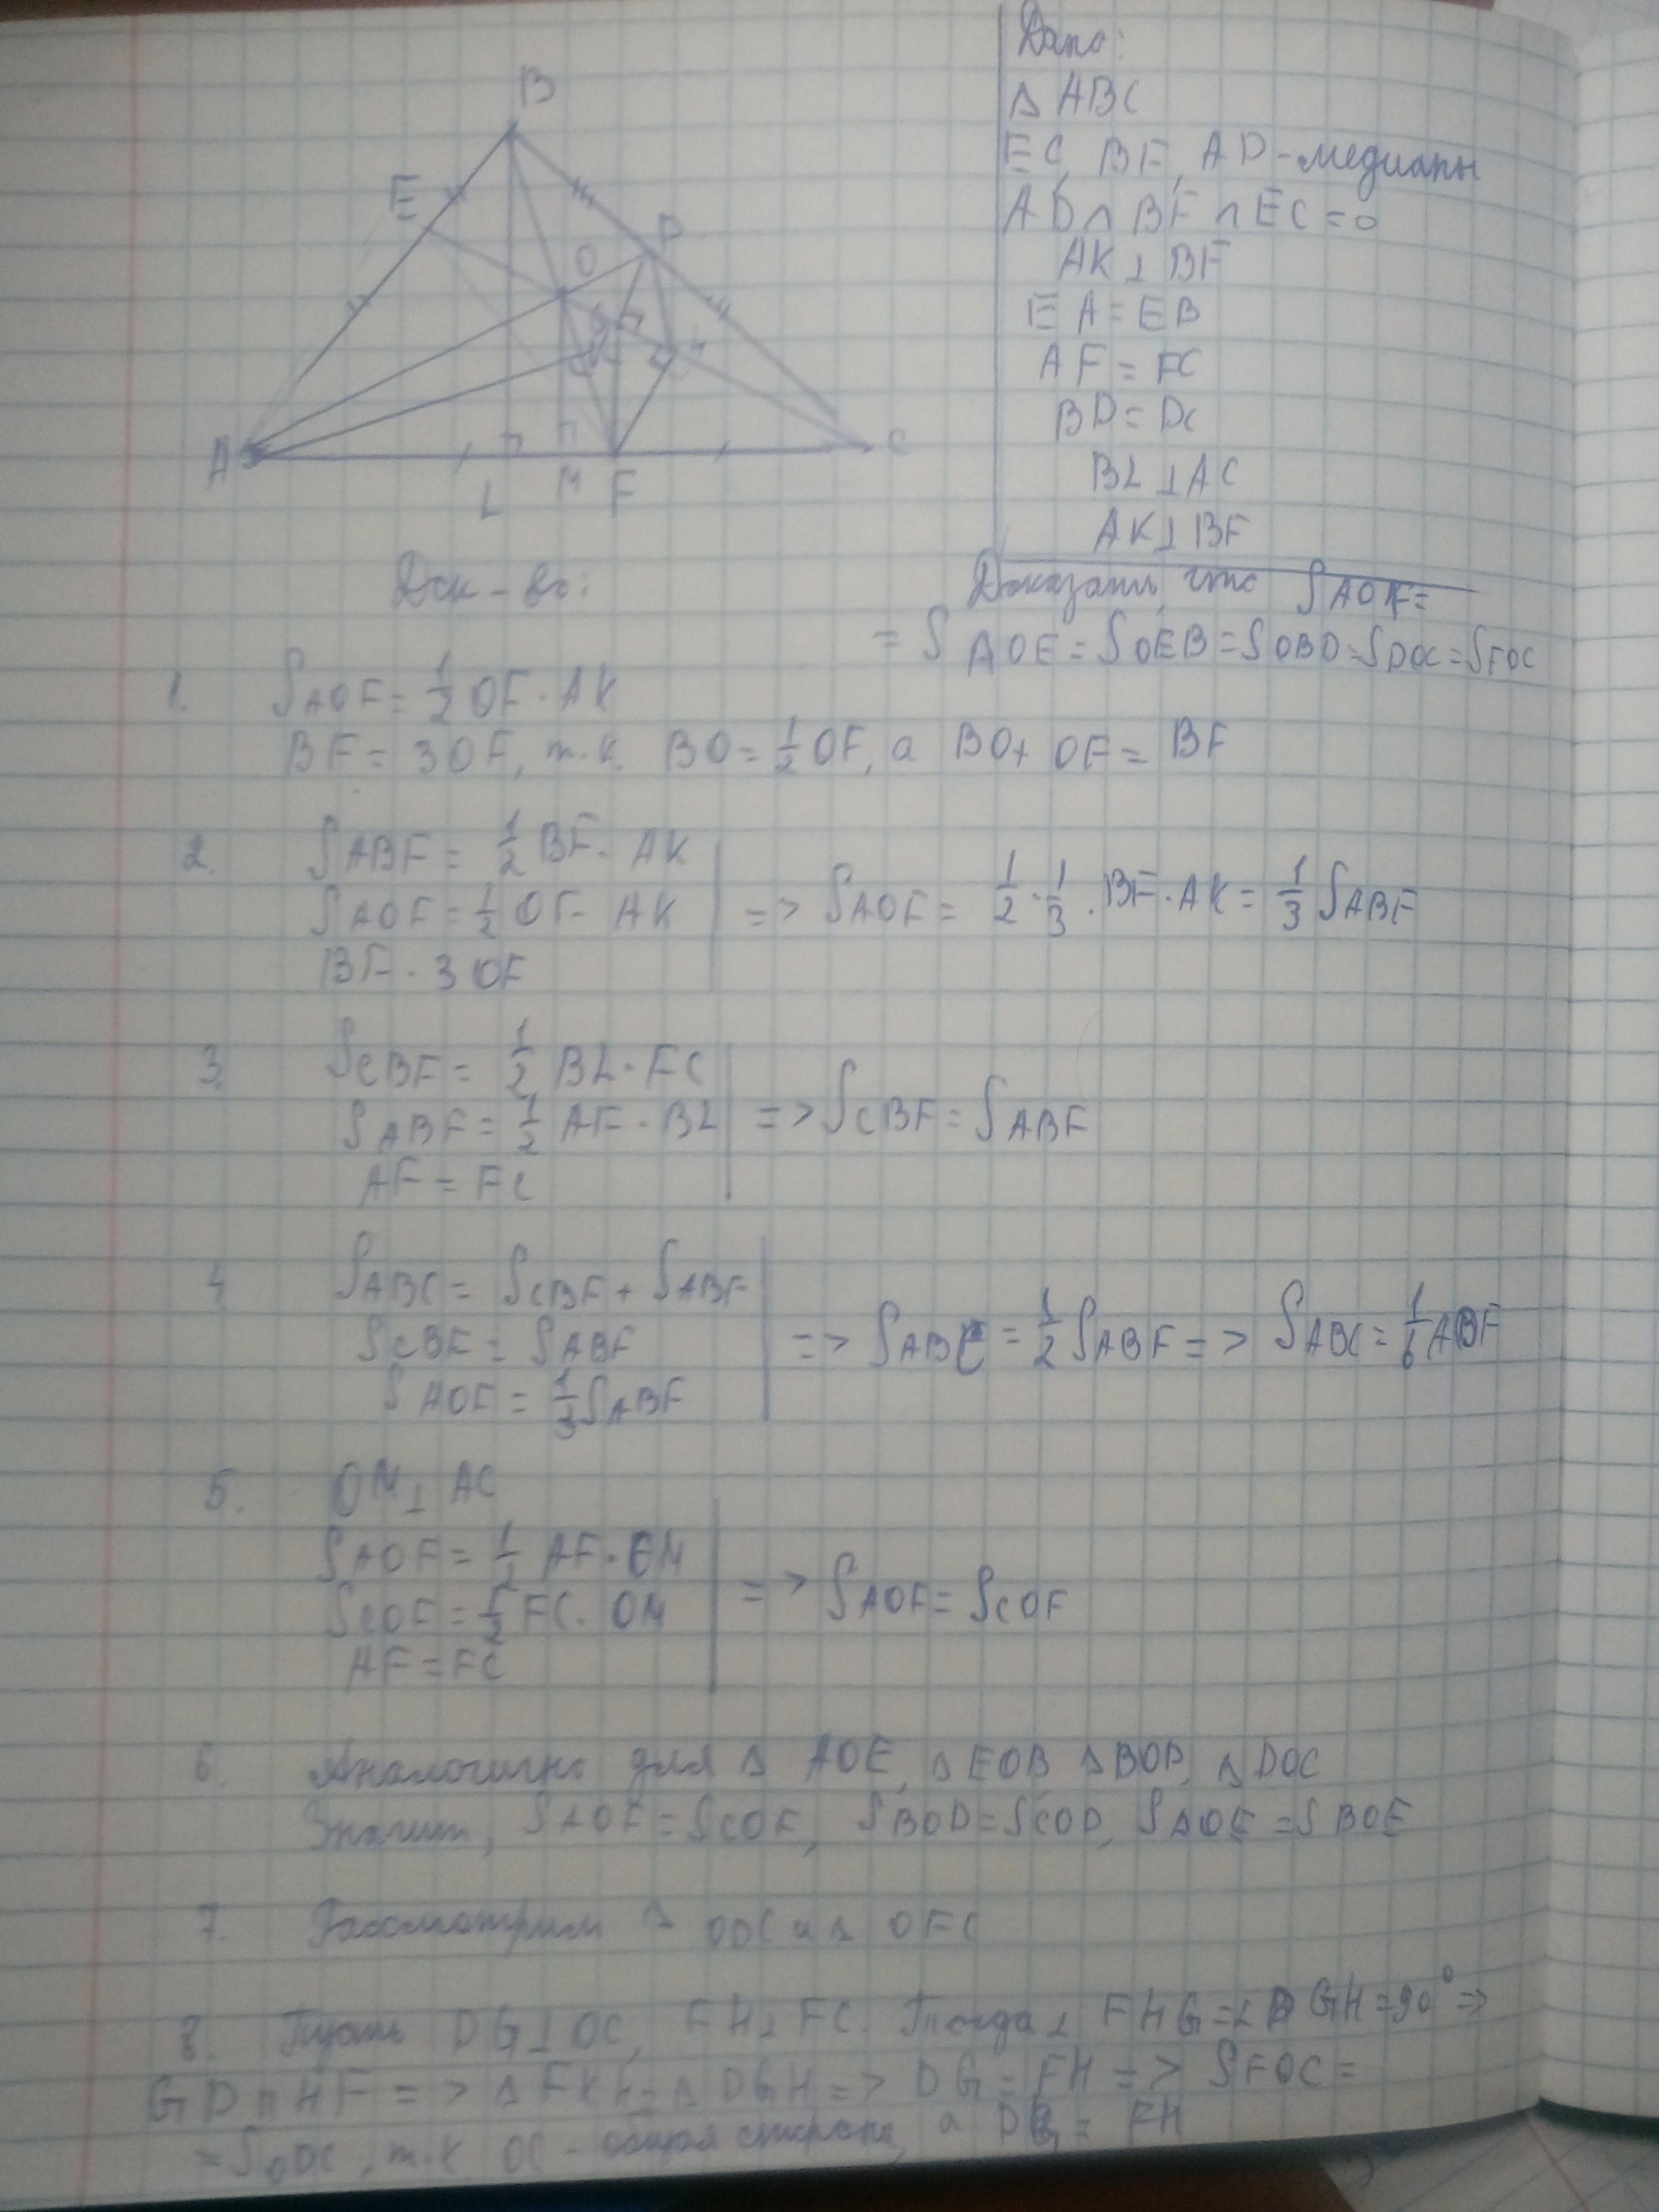 B
E
D
O
A
C
L
M
F
Дано:
△ ABC
EC, BF, AD - медианы
AD ∩ BF ∩ EC = O
AK ⊥ BF
EA = EB
AF = FC
BD = DC
BL ⊥ AC
AK ⊥ BF
Док-во:
Доказать, что S AOF =
= S AOE = S OEB = S OBD = S DOC = S FOC
1. S AOF = 1/2 OF · AK
BF = 3 OF, т.к. BO = 1/2 OF, а BO + OF = BF
2. S ABF = 1/2 BF · AK
S AOF = 1/2 OF · AK => S AOF = 1/2 · 1/3 · BF · AK = 1/3 S ABF
BF · 3 OF
3. S CBF = 1/2 BL · FC
S ABF = 1/2 AF · BL => S CBF = S ABF
AF = FC
4 S ABC = S CBF + S ABF
S CBF = S ABF => S ABC = 1/2 S ABF => S ABC = 1/6 ABF
S AOF = 1/3 S ABF
5. OM ⊥ AC
S AOF = 1/2 AF · OM
S COF = 1/2 FC · OM => S AOF = S COF
AF = FC
6. Аналогично для △ AOE, △ EOB, △ BOD, △ DOC
Значит, S AOF = S COF, S BOD = S COD, S AOE = S BOE
7. Рассмотрим △ ODC и △ OFC
8. Пусть DG ⊥ OC, FH ⊥ FC. Тогда ∠ FHG = ∠ DGH = 90° =>
GD HF => △ = △ DGH => DG = FH => S FOC =
= S ODC, т.к. OC - общая сторона, а DG = FH